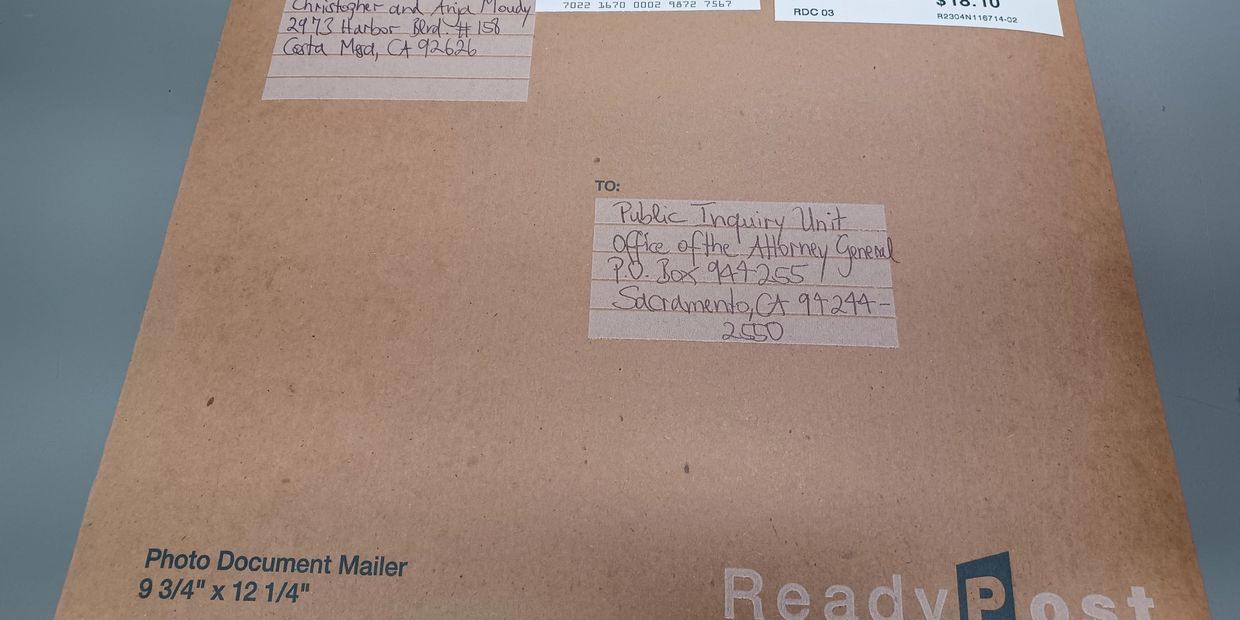 Christopher and Anja Moudy
2973 Harbor Blvd. # 158
Costa Mesa, CA 92626
7022 1670 0002 9872 7567
$18.10
RDC 03
R2304N116714-02
TO:
Public Inquiry Unit
Office of the Attorney General
P.O. Box 944255
Sacramento, CA 94244-
2550
Photo Document Mailer
9 3/4" x 12 1/4"
ReadyPost